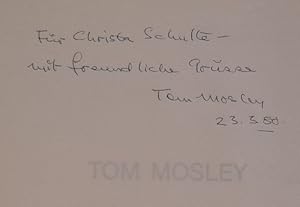 Für Christa Schulte –
mit freundliche Grüsse
Tom Mosley
23.3.80
TOM MOSLEY